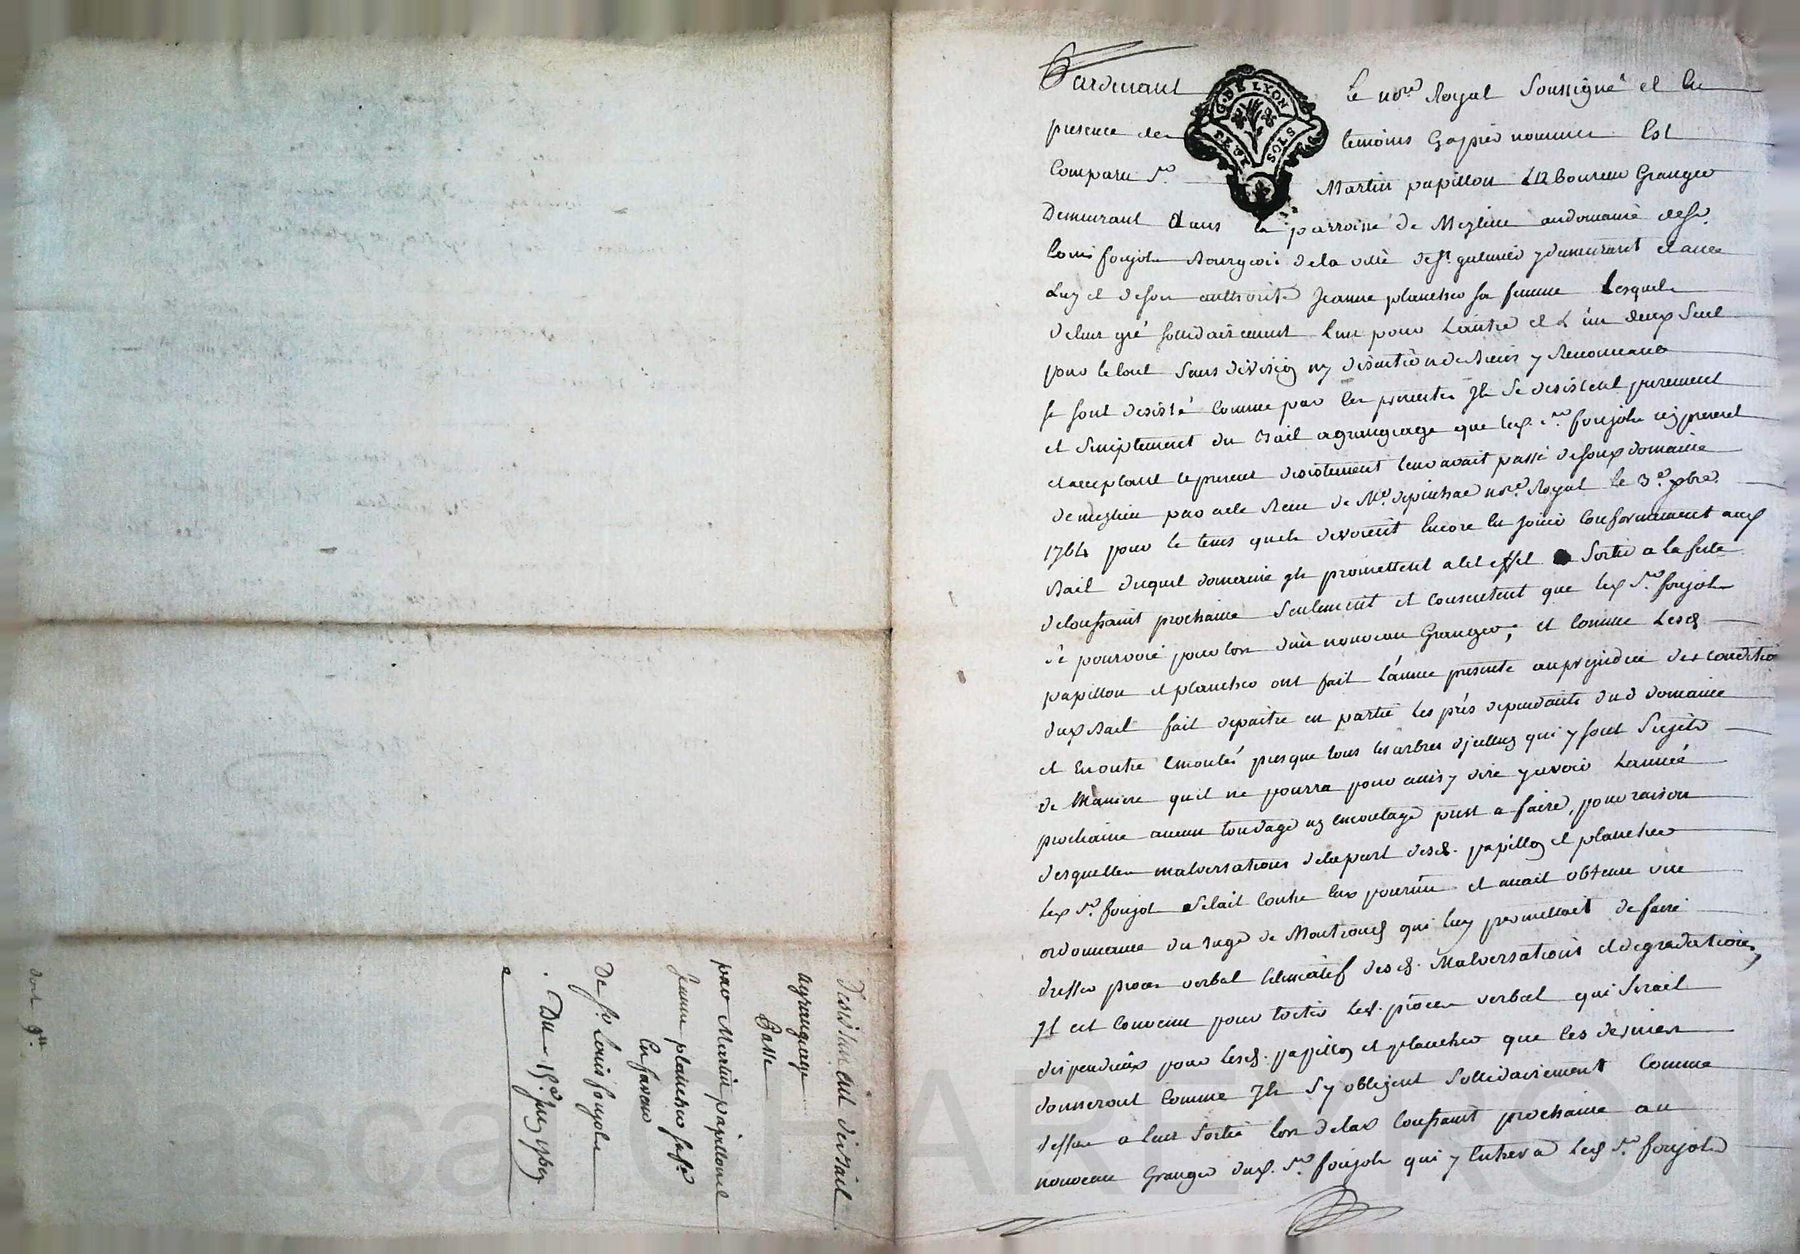 Pardevant le nore Royal Soussigné et En
presence des temoins Cy apres nommés Est
Comparu Sr. Martin papillon Laboureur Granger
G. DE LYON
DEUX SOLS
Demeurant Dans la parroisse de Meylieu au domaine de Sr.
Louis foujols Bourgeois de la ville de St. galmier y demeurant et avec
Luy et de son authorité Jeanne plancher sa femme Lesquels
de leur gré sollidairement L'un pour L'autre et L'un deux Seul
pour le tout Sans division ny discution de Biens y Renonceans
se sont desisté comme par les presentes Ils Se desistent purement
et Simplement du Bail agrangeage que led. Sr. foujols icy present
et acceptant le present desistement leur avait passé de Son domaine
de meylieu par acte Receu de Me. depinhac nore. Royal le 3e. xbre.
1764 pour le tems quils devoient Encore En Jouir Conformement aud
Bail duquel domaine ils promettent a cet effet Sortir a la feste
de toussaint prochaine Seulement et Consentent que led. Sr. foujols
se pourvoie pour lors d'un nouveau Granger, et Comme Lesd.
papillon et plancher ont fait L'année presente au prejudice des conditions
dud Bail fait depaitre en partie les prés dependants dud domaine
et En outre Emouté presque tous les arbres d'iceluy qui y sont Sujets
de Maniere qu'il ne pourra pour ainsy dire y avoir L'année
prochaine aucun tondage ny emoutage pour a faire, pour raison
desquelles malversations de la part desd. papillon et plancher
led Sr. foujols s'etait contre Eux pourvu et avait obtenu une
ordonnance du Juge de Montrond qui luy permettait de faire
dresser proces verbal Estimatif desd. Malversations et degradations,
Il est Convenu pour Eviter led. proces verbal qui Serait
dispendieux pour lesd. papillon et plancher que ces derniers
donneront Comme Ils S'y obligent Sollidairement Comme
dessus a leur Sortie lors de lad toussaint prochaine au
nouveau Granger dud. Sr. foujols qui y Entrera led Sr. foujols
Desistement de Bail
agrangeage
Passé
par Martin papillon et
Jeanne plancher sa fe.
En faveur
De Sr. Louis foujols
Du 15e. Juin 1769.